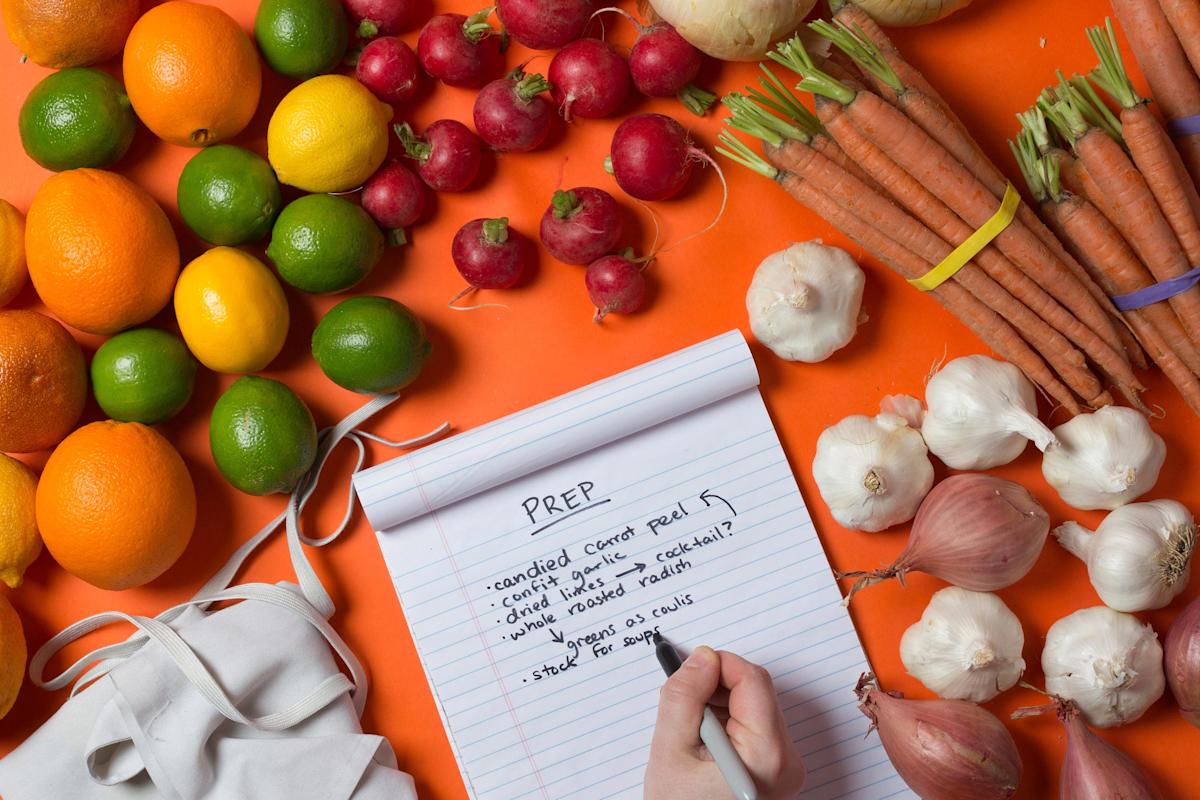 PREP
·candied carrot peel
·confit garlic
·dried limes → cocktail?
·whole roasted radish
↘ greens as coulis
·stock for soups